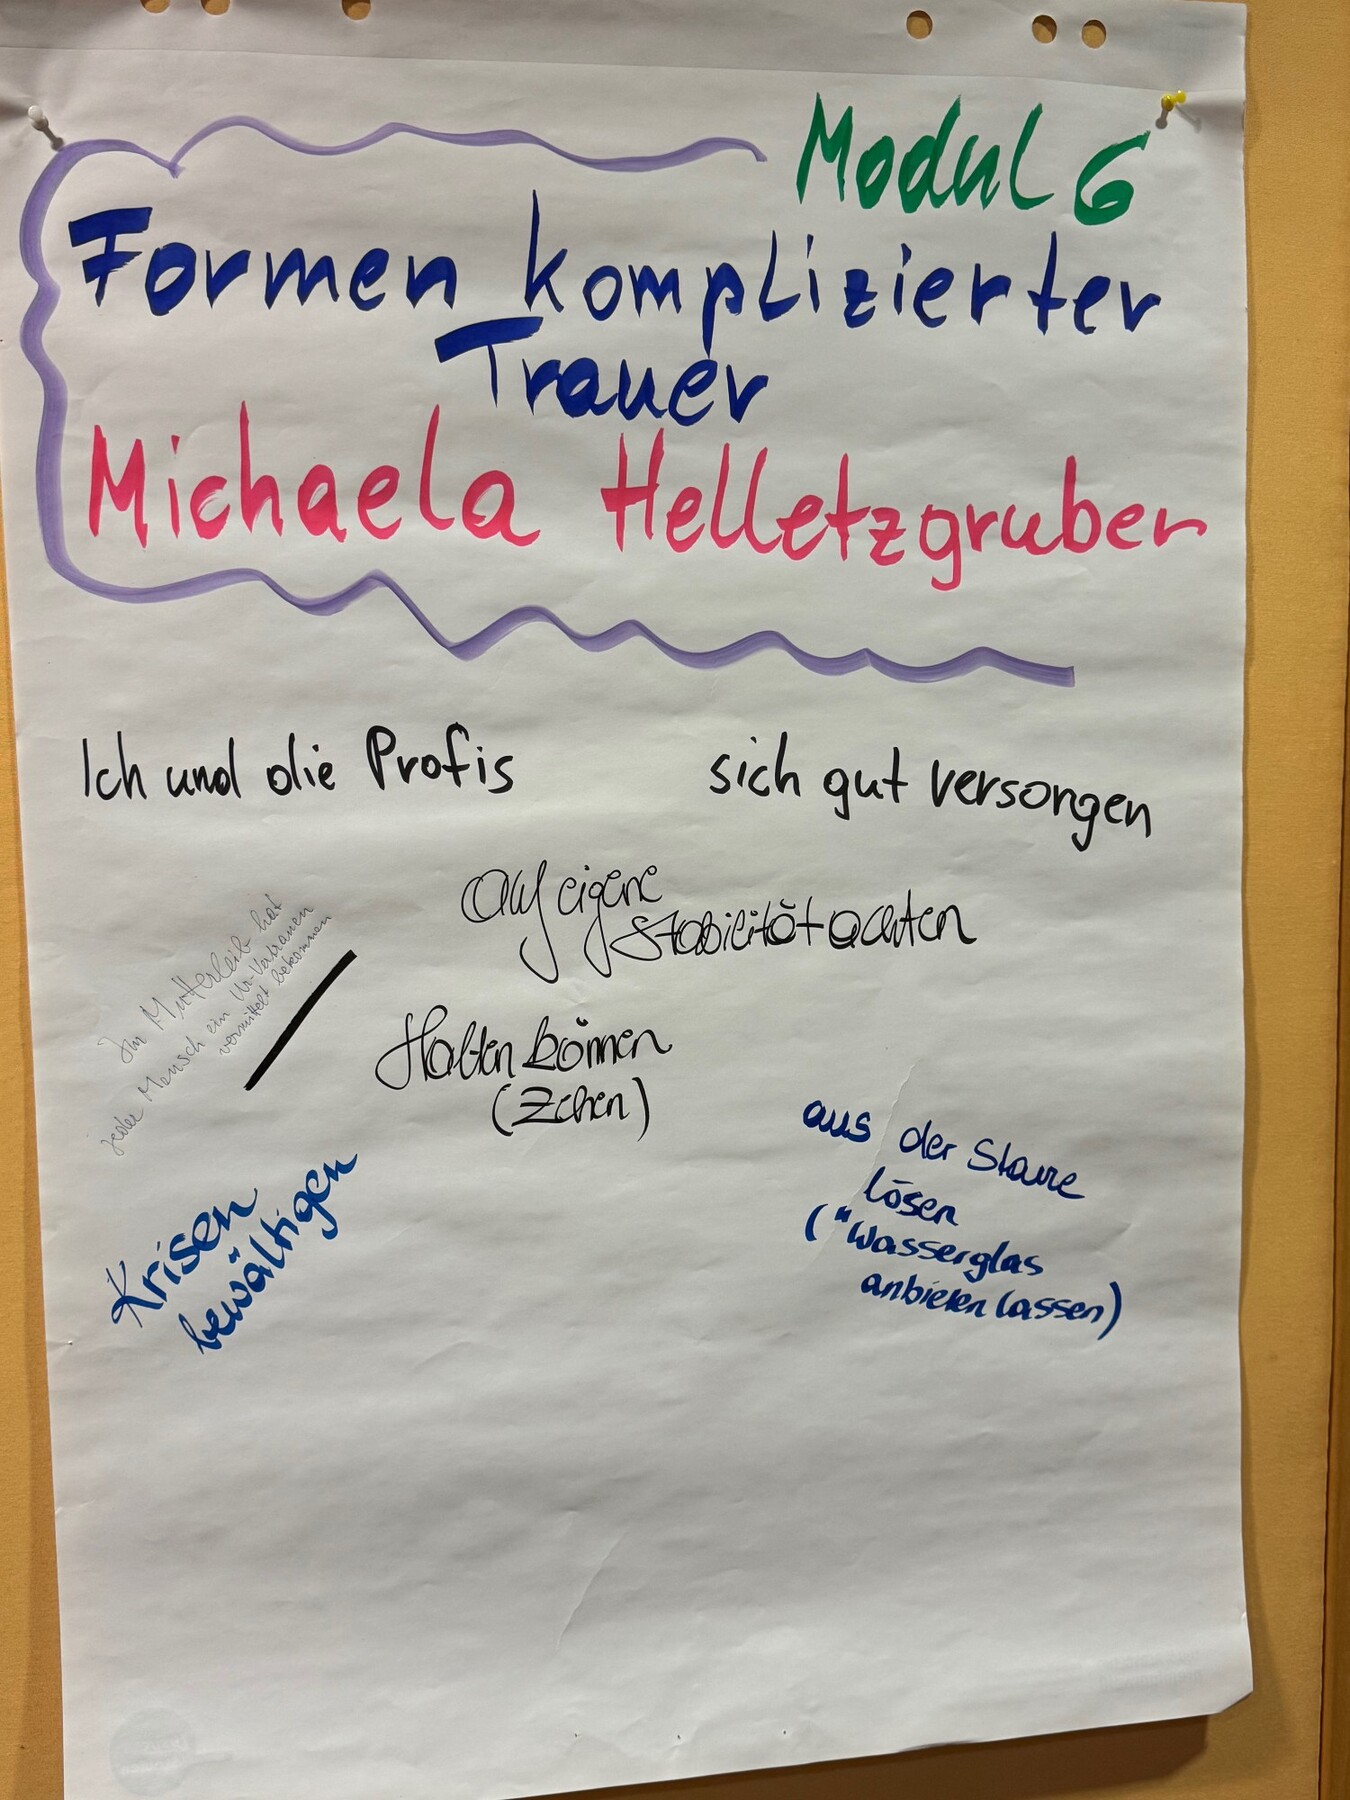 Modul 6
Formen komplizierter
Trauer
Michaela Helletzgruber
Ich und die Profis
sich gut versorgen
Auf eigene
Stabilität achten
Im Mutterleib hat
jeder Mensch ein Ur-Vertrauen
vermittelt bekommen
Halten können
(Zehen)
aus der Starre
lösen
("Wasserglas
anbieten lassen)
Krisen
bewältigen